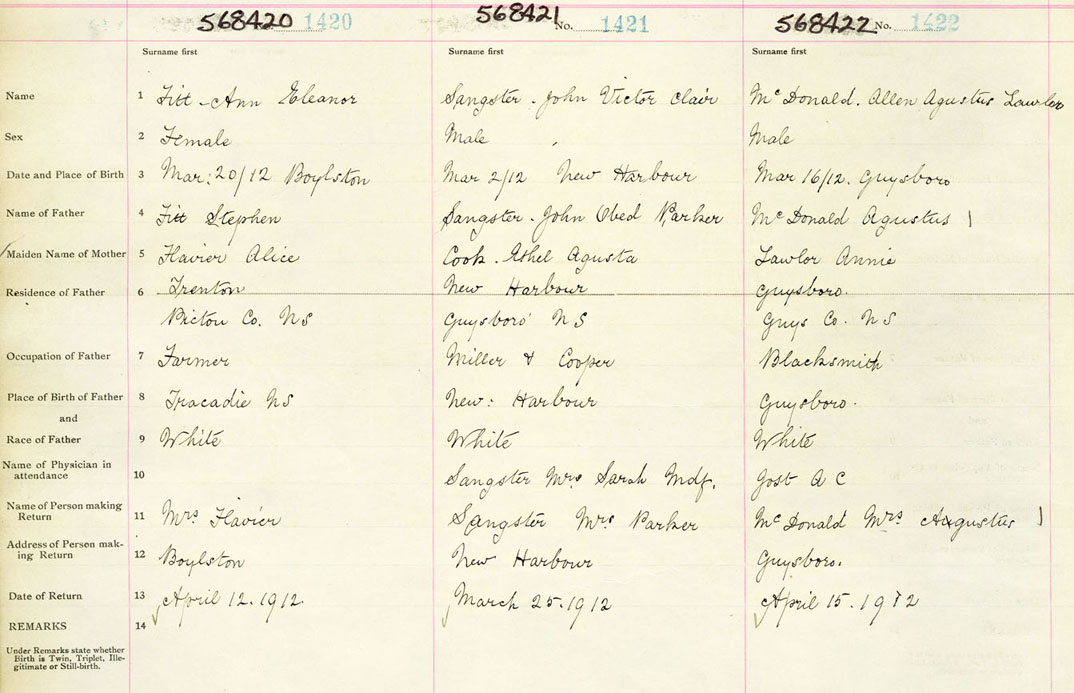 568420 1420 568421 No. 1421 568422 No. 1422
Surname first Surname first Surname first
Name 1 Titt - Ann Eleanor Sangster - John Victor Clair Mc Donald. Allen Agustus Lawlor
Sex 2 Female Male Male
Date and Place of Birth 3 Mar: 20/12 Boylston Mar 2/12 New Harbour Mar 16/12. Guysboro
Name of Father 4 Titt Stephen Sangster - John Obed Parker Mc Donald Agustus
Maiden Name of Mother 5 Flavier Alice Cook - Ethel Agusta Lawlor Annie
Residence of Father 6 Trenton New Harbour Guysboro.
Pictou Co. NS Guysboro' NS Guys Co. NS
Occupation of Father 7 Farmer Miller & Cooper Blacksmith
Place of Birth of Father 8 Tracadie NS New: Harbour Guysboro.
and
Race of Father 9 White White White
Name of Physician in
attendance 10 Sangster Mrs Sarah Mdf. Jost A C
Name of Person making
Return 11 Mrs Flavier Sangster Mrs Parker Mc Donald Mrs Augustus
Address of Person mak-
ing Return 12 Boylston New Harbour Guysboro.
Date of Return 13 April 12. 1912. March 25. 1912 April 15. 1912
REMARKS 14
Under Remarks state whether
Birth is Twin, Triplet, Ille-
gitimate or Still-birth.